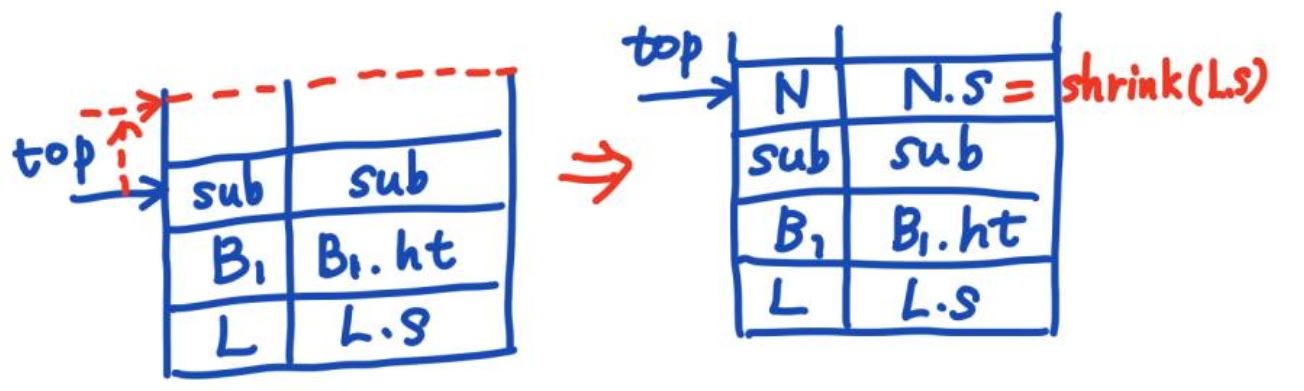 top
sub sub
B₁ B₁.ht
L L.S
⇒
top
N N.S = shrink(L.S)
sub sub
B₁ B₁.ht
L L.S